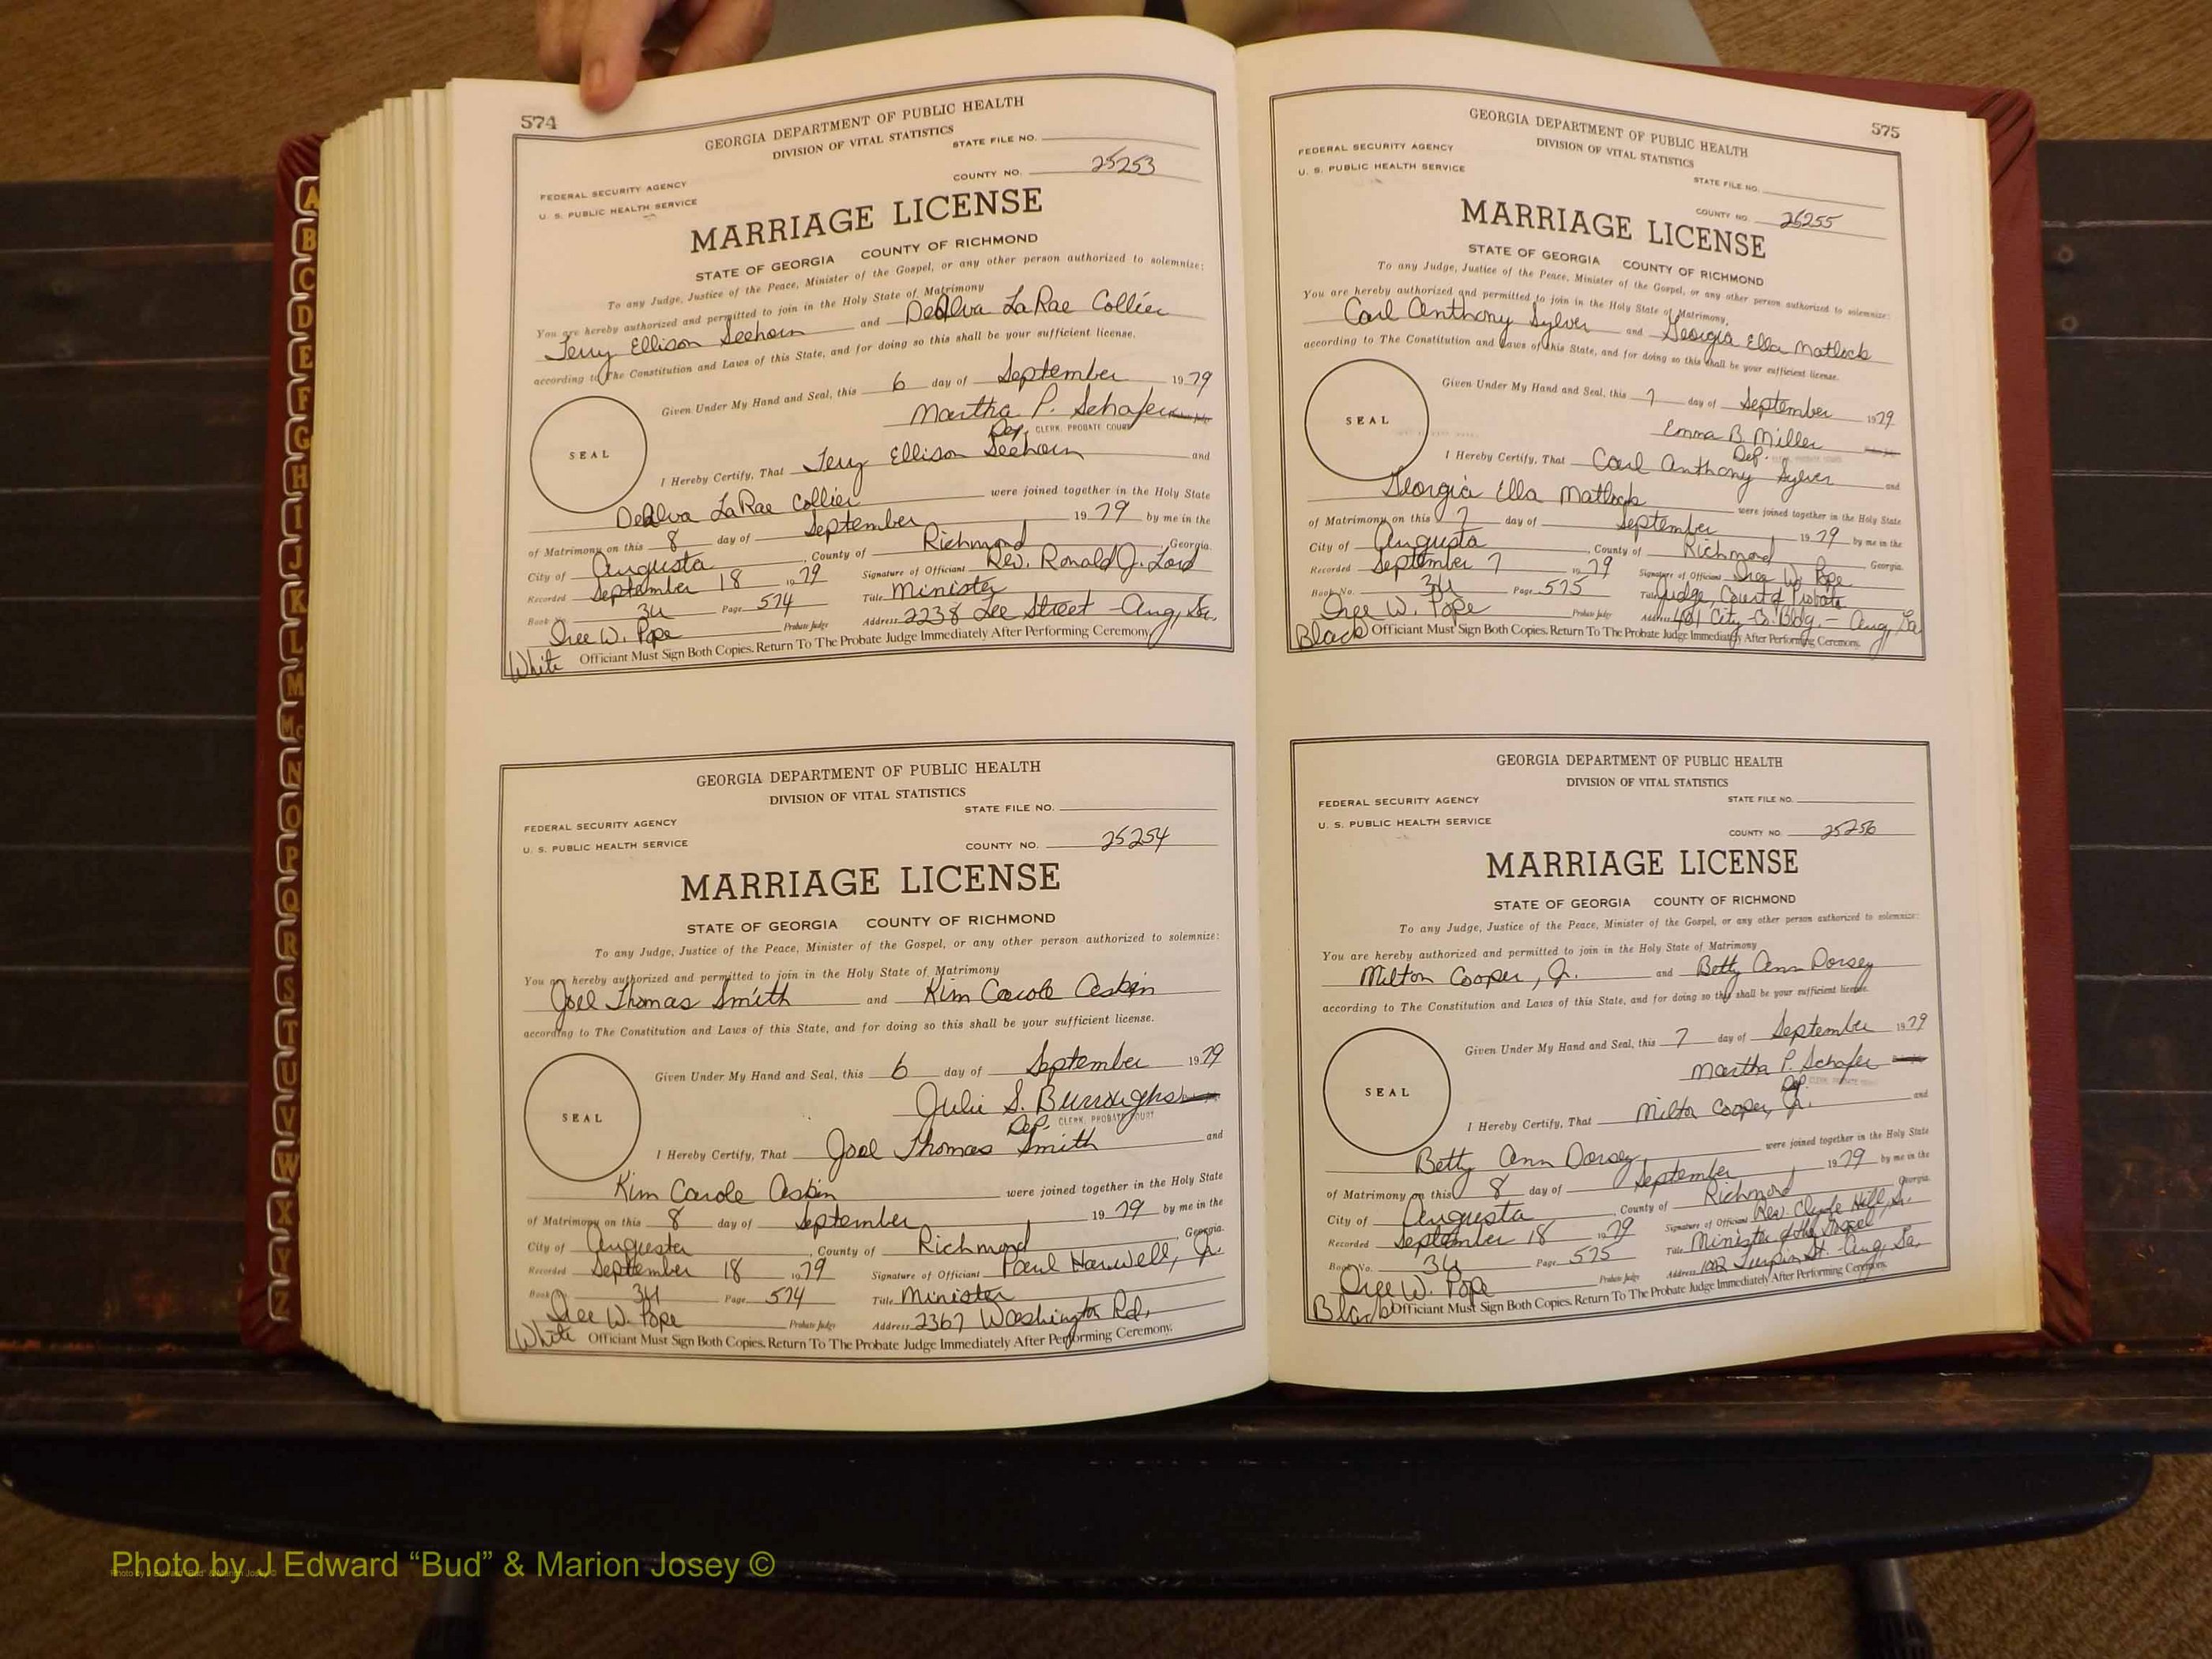 574
GEORGIA DEPARTMENT OF PUBLIC HEALTH
DIVISION OF VITAL STATISTICS
STATE FILE NO.
COUNTY NO. 25253
FEDERAL SECURITY AGENCY
U. S. PUBLIC HEALTH SERVICE
MARRIAGE LICENSE
STATE OF GEORGIA COUNTY OF RICHMOND
To any Judge, Justice of the Peace, Minister of the Gospel, or any other person authorized to solemnize:
You are hereby authorized and permitted to join in the Holy State of Matrimony
Terry Ellison Seehorn and DeAlva LaRae Collier
according to The Constitution and Laws of this State, and for doing so this shall be your sufficient license.
Given Under My Hand and Seal, this 6 day of September 1979
Martha P. Schafer
Dep. CLERK, PROBATE COURT
SEAL
I Hereby Certify, That Terry Ellison Seehorn and
DeAlva LaRae Collier were joined together in the Holy State
of Matrimony on this 8 day of September 1979 by me in the
City of Augusta, County of Richmond, Georgia.
Recorded September 18 1979 Signature of Officiant Rev. Ronald J. Lord
Book No. 34 Page 574 Title Minister
Iree W. Pope Probate Judge Address 2238 Lee Street - Aug, Ga.
White Officiant Must Sign Both Copies. Return To The Probate Judge Immediately After Performing Ceremony.
GEORGIA DEPARTMENT OF PUBLIC HEALTH
DIVISION OF VITAL STATISTICS
STATE FILE NO.
FEDERAL SECURITY AGENCY
U. S. PUBLIC HEALTH SERVICE
COUNTY NO. 25254
MARRIAGE LICENSE
STATE OF GEORGIA COUNTY OF RICHMOND
To any Judge, Justice of the Peace, Minister of the Gospel, or any other person authorized to solemnize:
You are hereby authorized and permitted to join in the Holy State of Matrimony
Joel Thomas Smith and Kim Carole Asbin
according to The Constitution and Laws of this State, and for doing so this shall be your sufficient license.
Given Under My Hand and Seal, this 6 day of September 1979
Julie S. Burroughs
Dep. CLERK, PROBATE COURT
SEAL
I Hereby Certify, That Joel Thomas Smith and
Kim Carole Asbin were joined together in the Holy State
of Matrimony on this 8 day of September 1979 by me in the
City of Augusta, County of Richmond, Georgia.
Recorded September 18 1979 Signature of Officiant Paul Harwell, Jr.
Book No. 34 Page 574 Title Minister
Iree W. Pope Probate Judge Address 2367 Washington Rd,
White Officiant Must Sign Both Copies. Return To The Probate Judge Immediately After Performing Ceremony.
575
GEORGIA DEPARTMENT OF PUBLIC HEALTH
DIVISION OF VITAL STATISTICS
FEDERAL SECURITY AGENCY
U. S. PUBLIC HEALTH SERVICE
STATE FILE NO.
COUNTY NO. 26255
MARRIAGE LICENSE
STATE OF GEORGIA COUNTY OF RICHMOND
To any Judge, Justice of the Peace, Minister of the Gospel, or any other person authorized to solemnize:
You are hereby authorized and permitted to join in the Holy State of Matrimony,
Carl Anthony Sylver and Georgia Ella Matlock
according to The Constitution and Laws of this State, and for doing so this shall be your sufficient license.
Given Under My Hand and Seal, this 7 day of September 1979
Emma B. Miller
Dep.
SEAL
I Hereby Certify, That Carl Anthony Sylver and
Georgia Ella Matlock were joined together in the Holy State
of Matrimony on this 7 day of September 1979 by me in the
City of Augusta, County of Richmond Georgia.
Recorded September 7 1979 Signature of Officiant Iree W. Pope
Book No. 34 Page 575 Title Judge, Court of Probate
Iree W. Pope Probate Judge Address 401 City-Co. Bldg. - Aug, Ga
Black Officiant Must Sign Both Copies. Return To The Probate Judge Immediately After Performing Ceremony.
GEORGIA DEPARTMENT OF PUBLIC HEALTH
DIVISION OF VITAL STATISTICS
FEDERAL SECURITY AGENCY
STATE FILE NO.
U. S. PUBLIC HEALTH SERVICE
COUNTY NO. 25256
MARRIAGE LICENSE
STATE OF GEORGIA COUNTY OF RICHMOND
To any Judge, Justice of the Peace, Minister of the Gospel, or any other person authorized to solemnize:
You are hereby authorized and permitted to join in the Holy State of Matrimony
Milton Cooper, Jr. and Betty Ann Dorsey
according to The Constitution and Laws of this State, and for doing so this shall be your sufficient license.
Given Under My Hand and Seal, this 7 day of September 1979
Martha P. Schafer
Dep. CLERK, PROBATE COURT
SEAL
I Hereby Certify, That Milton Cooper, Jr. and
Betty Ann Dorsey were joined together in the Holy State
of Matrimony on this 8 day of September 1979 by me in the
City of Augusta, County of Richmond Georgia.
Recorded September 18 1979 Signature of Officiant Rev. Clyde Hill, Sr.
Book No. 34 Page 575 Title Minister of the Gospel
Iree W. Pope Probate Judge Address 1002 Turpin St. - Aug, Ga.
Black Officiant Must Sign Both Copies. Return To The Probate Judge Immediately After Performing Ceremony.
A
B
C
D
E
F
G
H
I
J
K
L
M
Mc
N
O
P
Q
R
S
T
U
V
W
X
Y
Z
Photo by J Edward “Bud” & Marion Josey ©
Photo by J Edward "Bud" & Marion Josey ©